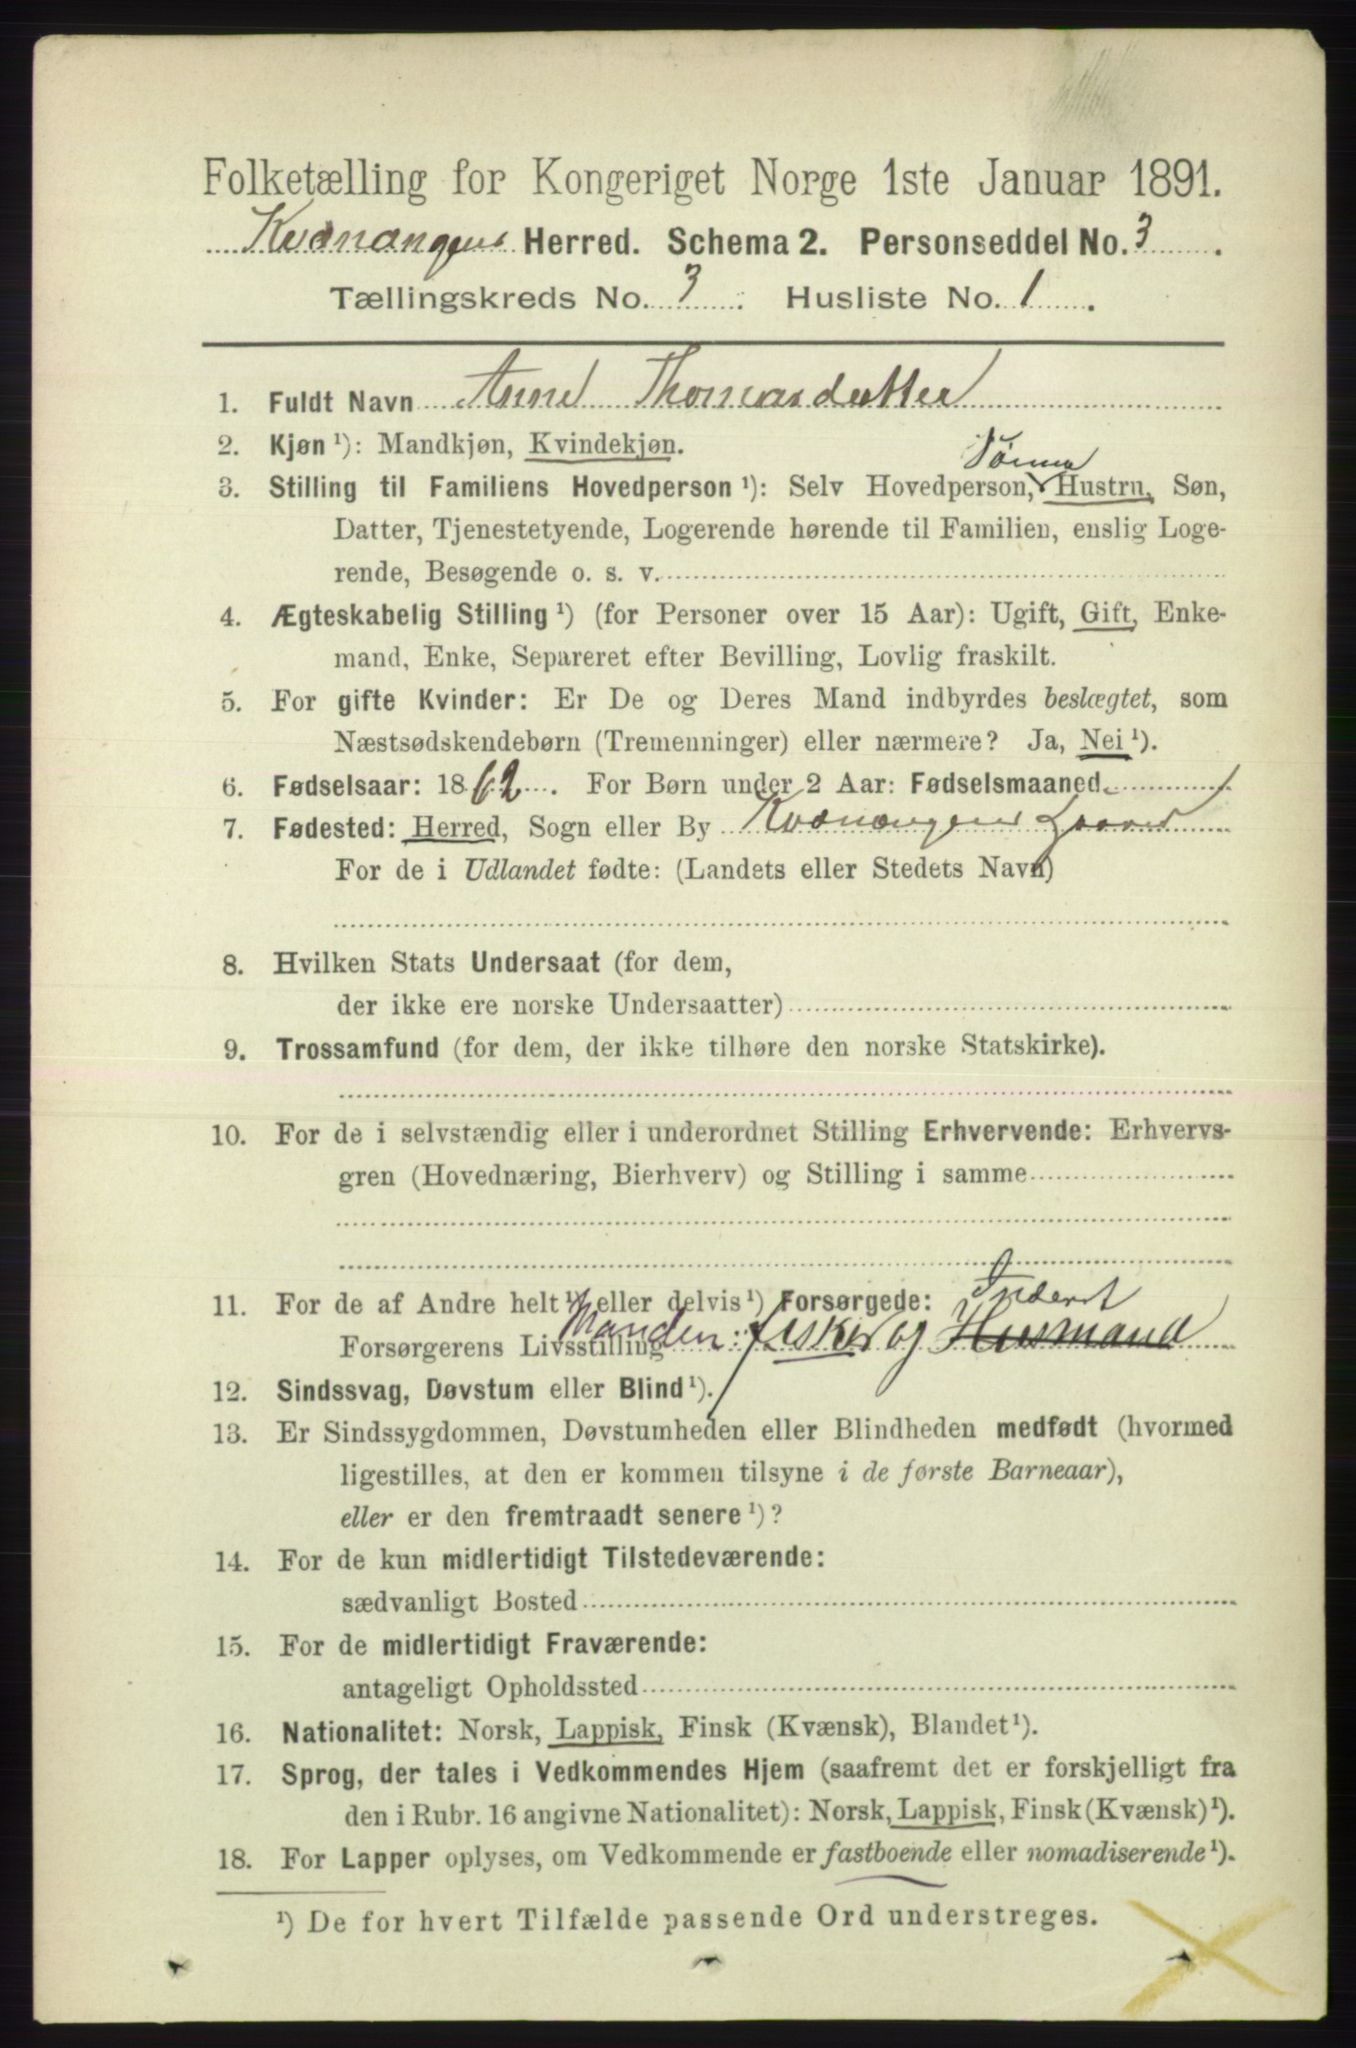 Folketælling for Kongeriget Norge 1ste Januar 1891.
Kvænangens Herred. Schema 2. Personseddel No. 3.
Tællingskreds No. 3. Husliste No. 1.
1. Fuldt Navn Anne Thomasdatter
2. Kjøn ¹): Mandkjøn, Kvindekjøn.
Sønne
3. Stilling til Familiens Hovedperson ¹): Selv Hovedperson, Hustru, Søn,
Datter, Tjenestetyende, Logerende hørende til Familien, enslig Loge-
rende, Besøgende o. s. v.
4. Ægteskabelig Stilling ¹) (for Personer over 15 Aar): Ugift, Gift, Enke-
mand, Enke, Separeret efter Bevilling, Lovlig fraskilt.
5. For gifte Kvinder: Er De og Deres Mand indbyrdes beslægtet, som
Næstsødskendebørn (Tremenninger) eller nærmere? Ja, Nei ¹).
6. Fødselsaar: 1862. For Børn under 2 Aar: Fødselsmaaned
7. Fødested: Herred, Sogn eller By Kvænangens
For de i Udlandet fødte: (Landets eller Stedets Navn)
8. Hvilken Stats Undersaat (for dem,
der ikke ere norske Undersaatter)
9. Trossamfund (for dem, der ikke tilhøre den norske Statskirke).
10. For de i selvstændig eller i underordnet Stilling Erhvervende: Erhvervs-
gren (Hovednæring, Bierhverv) og Stilling i samme
11. For de af Andre helt ¹) eller delvis ¹) Forsørgede: Inderst
Forsørgerens Livsstilling Manden: fisker og Husmand
12. Sindssvag, Døvstum eller Blind ¹).
13. Er Sindssygdommen, Døvstumheden eller Blindheden medfødt (hvormed
ligestilles, at den er kommen tilsyne i de første Barneaar),
eller er den fremtraadt senere ¹)?
14. For de kun midlertidigt Tilstedeværende:
sædvanligt Bosted
15. For de midlertidigt Fraværende:
antageligt Opholdssted
16. Nationalitet: Norsk, Lappisk, Finsk (Kvænsk), Blandet ¹).
17. Sprog, der tales i Vedkommendes Hjem (saafremt det er forskjelligt fra
den i Rubr. 16 angivne Nationalitet): Norsk, Lappisk, Finsk (Kvænsk) ¹).
18. For Lapper oplyses, om Vedkommende er fastboende eller nomadiserende ¹).
¹) De for hvert Tilfælde passende Ord understreges.